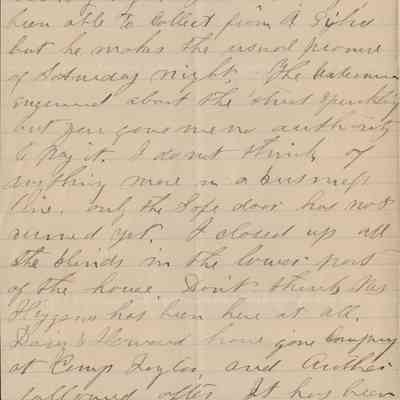 been able to collect from A
but he makes the usual promise
of Saturday night. The waterman
enquired about the street sprinkling
but you gave me no authority
to pay it. I do not think of
anything more in a business
line. only the Safe door has not
arrived yet. I closed up all
the blinds in the lower part
of the house Don't think Mrs
Higgans has been here at all.
Davis & Howard have gone Camping
at Camp Taylor, and Arthur
followed after. It has been